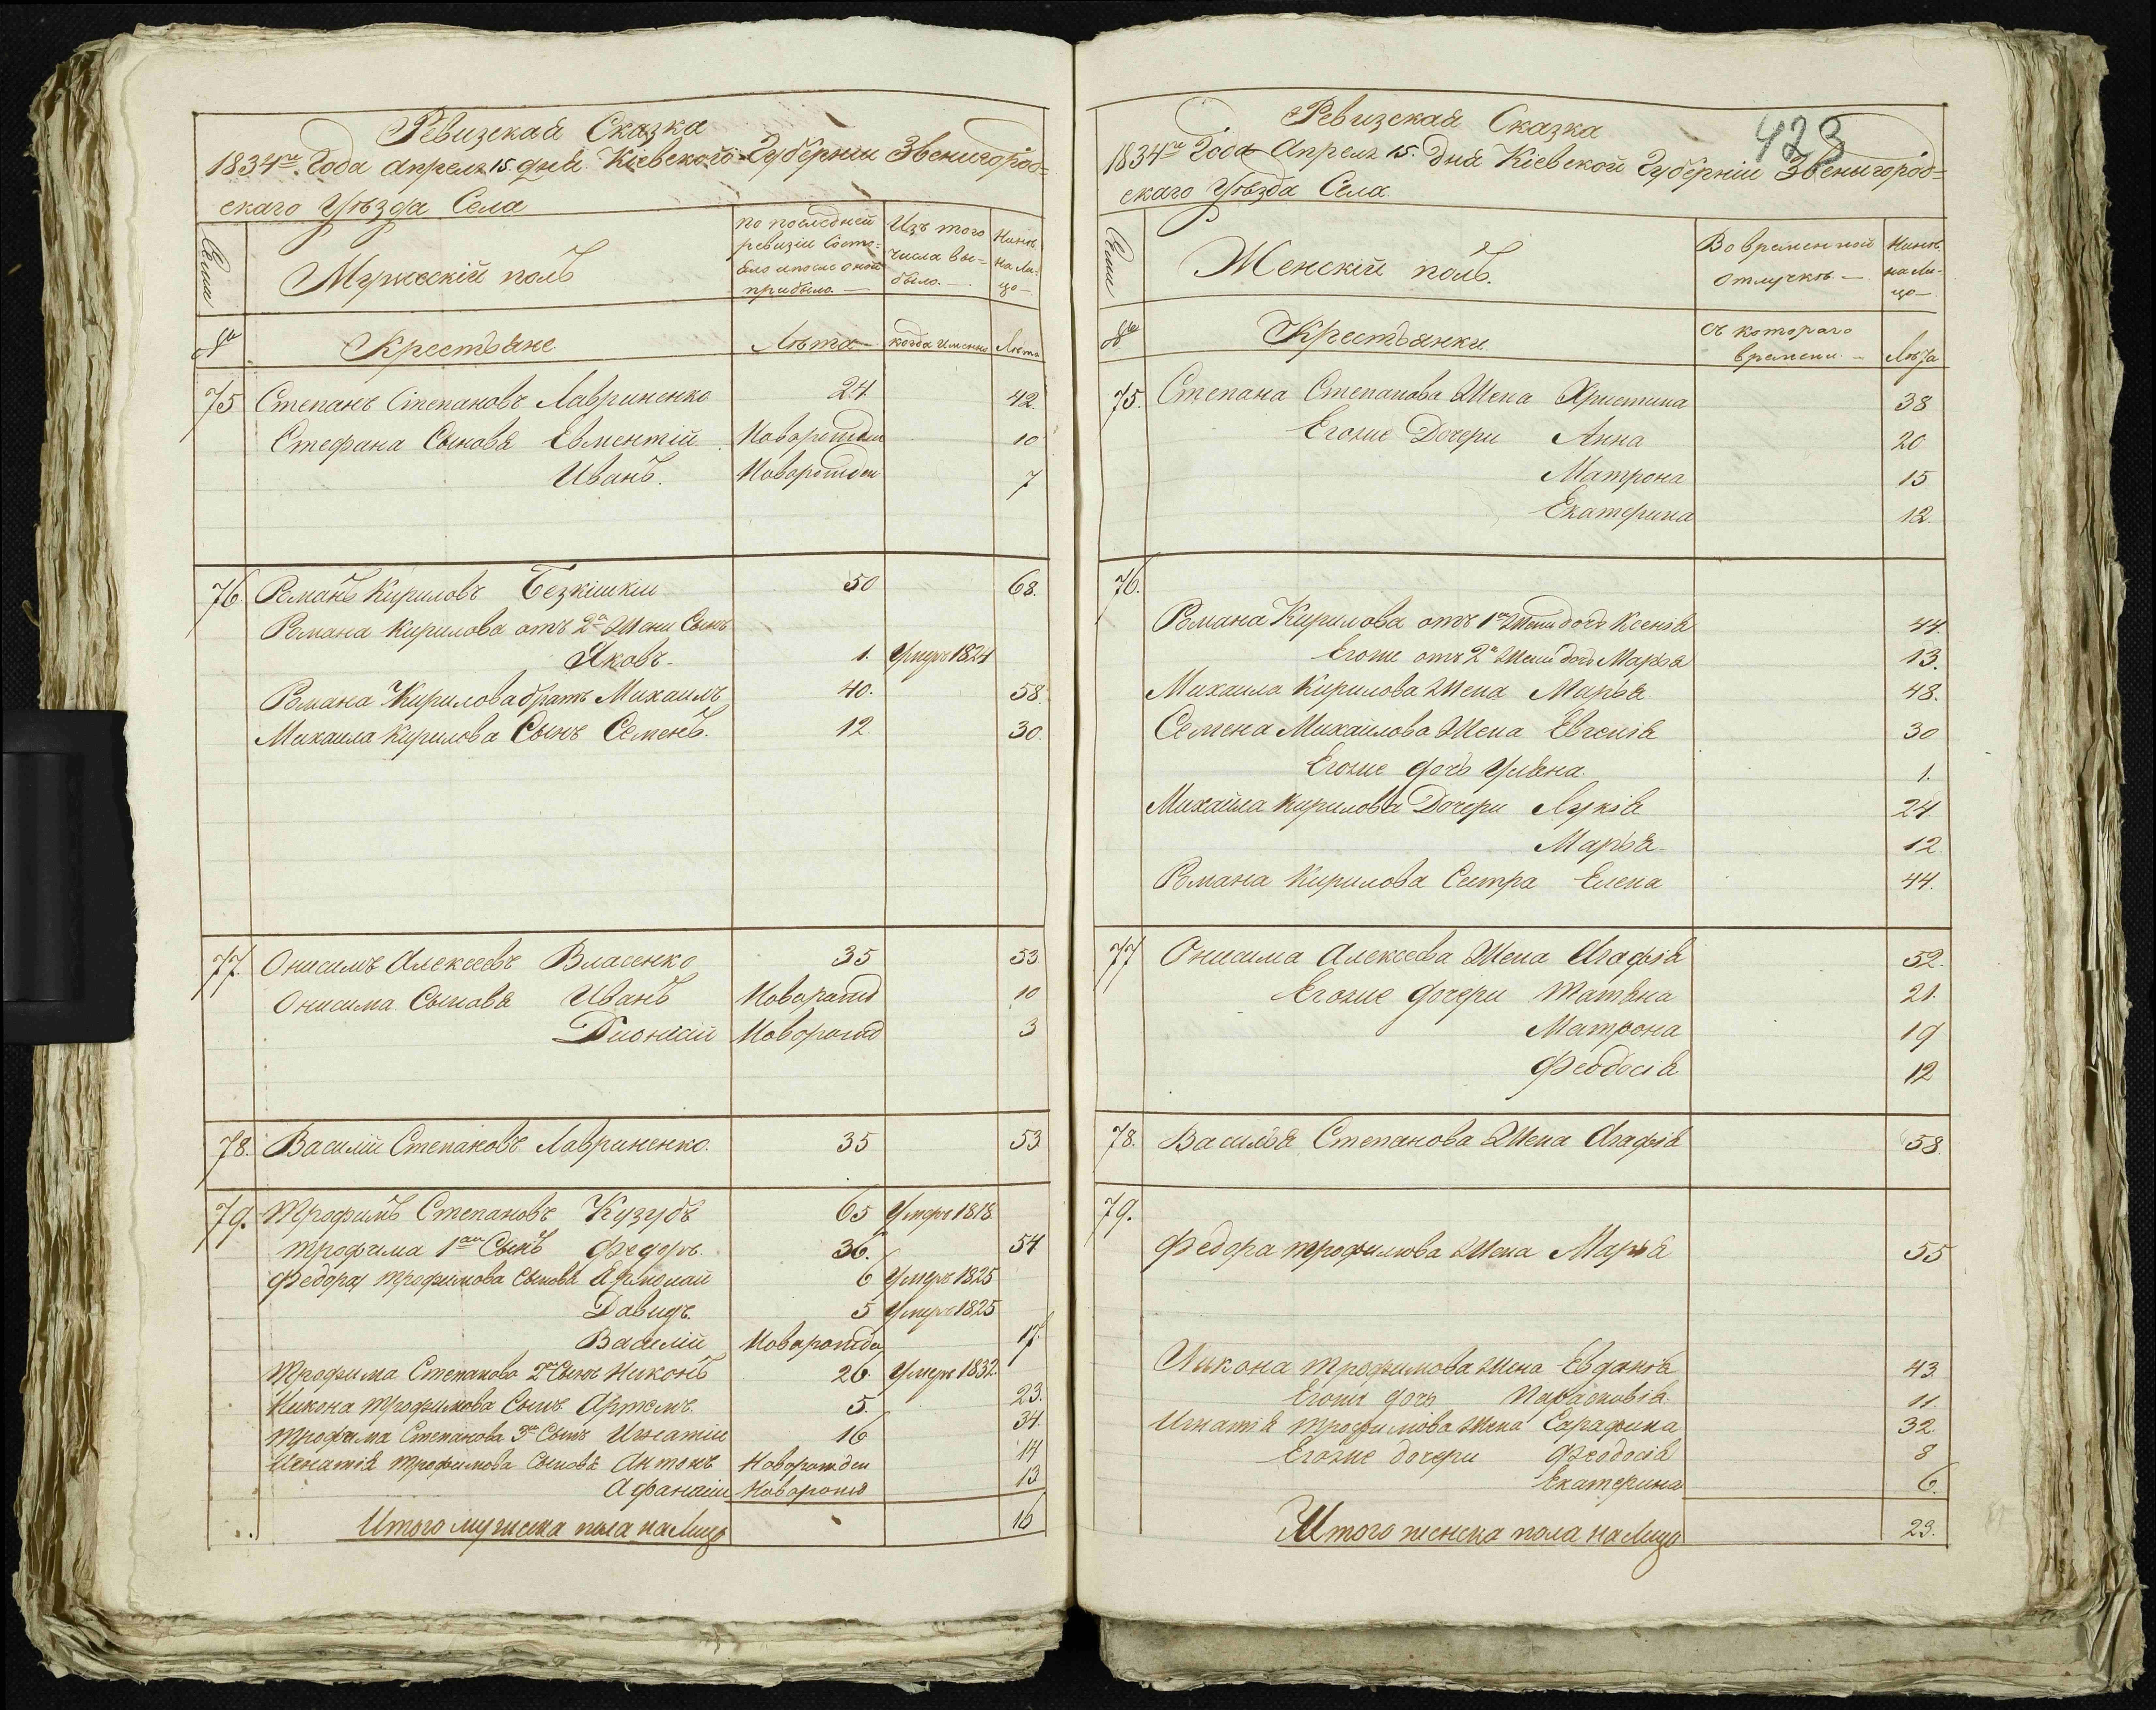 Ревизская Сказка
1834го Года Апреля 15 дня Кіевской Губерніи Звенигород=
скаго Уѣзда Села
Семьи
Мужескій полъ
По последней ревизіи состо=яло и после оной прибыло.—
Изъ того числа вы=было.—
Нынѣ на Ли=цо—
№
Крестьяне
Лѣта
когда имянно
Лѣта
75 Степанъ Степановъ Лавриненко 24. 42.
Стефана Сыновья Евментій Новорожден 10
Иванъ. Новорожден 7
76. Романъ Кириловъ Безкишкіи 50 68.
Романа Кирилова отъ 2й Жени Сынъ
Яковъ. 1. Умеръ 1824
Романа Кирилова братъ Михаилъ 40. 58.
Михаила Кирилова Сынъ Семенъ. 12. 30.
77. Онисимъ Алексеевъ Власенко 35 53
Онисима Сыновья Иванъ Новорожд 10
Дионисій Новорожд 3
78. Василій Степановъ Лавриненко. 35 53
79. Трофимъ Степановъ Кузубъ 65 Умеръ 1818
Трофима 1ый Сынъ Федоръ. 36. 54
Федора Трофимова Сыновья Ермолай 6 Умеръ 1825
Давидъ. 5 Умеръ 1825
Василій Новорожде 17.
Трофима Степанова 2й Сынъ Никонъ 26. Умеръ 1832.
Никона Трофимова Сынъ Артемъ. 5. 23.
Трофима Степанова 3й Сынъ Игнатій 16 34.
Игнатія Трофимова Сыновья Антонъ Новорожден 14
Афанасій Новорожд 13
Итого мужеска пола на Лицо 16
423
Ревизская Сказка
1834го Года Апреля 15. Дня Кіевской Губерніи Звенигород=
скаго Уѣзда Села
Семьи
Женскій полъ.
Во временной отлучкѣ—
Нынѣ на Ли=цо—
№
Крестьянки
съ котораго времени.—
Лѣта
75. Степана Степанова Жена Христина 38
Егоже Дочери Анна 20
Матрона 15
Екатерина 12.
76.
Романа Кирилова отъ 1й Жени дочь Ксенія 44.
Егоже отъ 2й Жени дочь Марья 13.
Михаила Кирилова Жена Марья 48.
Семена Михайлова Жена Евгенія 30
Егоже дочь Уляна. 1.
Михайла Кирилова Дочери Лукія 24
Марья 12
Романа Кирилова Сестра Елена 44.
77 Онисима Алексеева Жена Агафія 52.
Егоже дочери Татяна 21.
Матрона 19
Феодосія 12
78. Василья Степанова Жена Агафія 58.
79.
Федора Трофимова Жена Марья 55
Никона Трофимова Жена Евдокія 43.
Егоже дочь Парасковія 11.
Игнатія Трофимова Жена Сарафина 32.
Егоже дочери Феодосія 8
Екатерина 6.
Итого женска пола на Лицо 23.